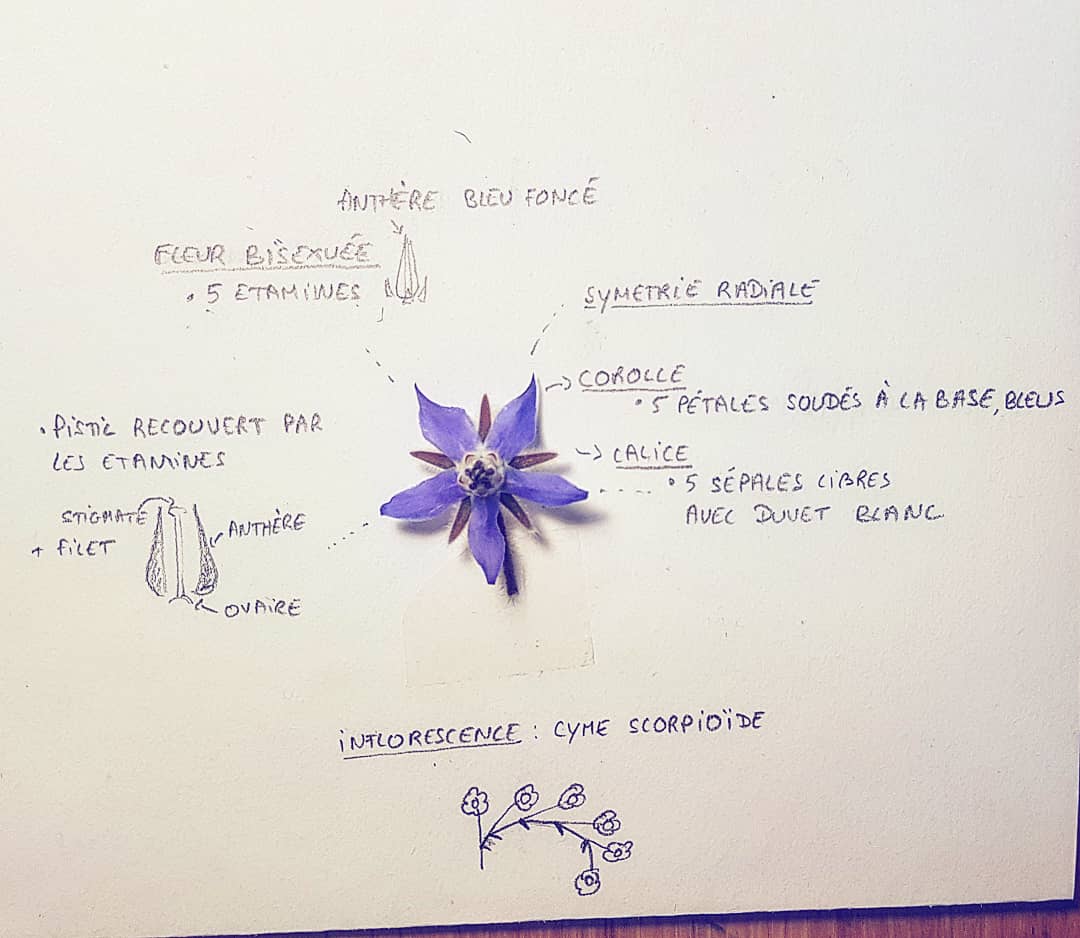 ANTHÈRE BLEU FONCÉ
FLEUR BISEXUÉE
• 5 ETAMINES
SYMETRIE RADIALE
COROLLE
• 5 PÉTALES SOUDÉS À LA BASE, BLEUS
CALICE
• 5 SÉPALES LIBRES
AVEC DUVET BLANC
• PISTIL RECOUVERT PAR
LES ETAMINES
STIGMATE
+ FILET
ANTHÈRE
OVAIRE
INFLORESCENCE : CYME SCORPIOÏDE